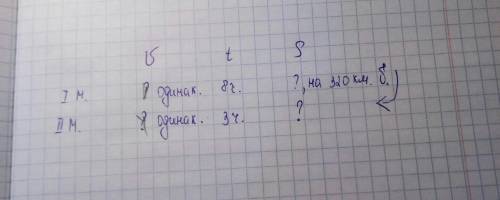 V t S
I м. одинак. 8ч. ?, на 320 км. б.
II м. одинак. 3ч. ?